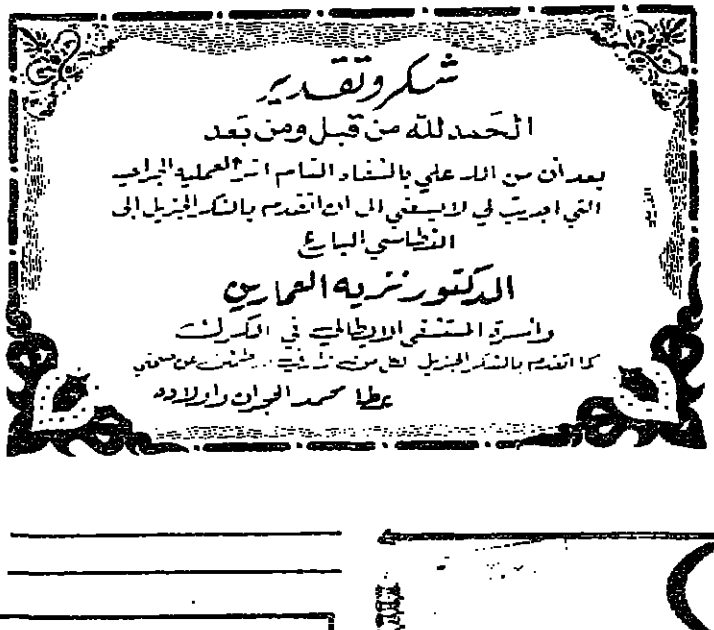 شكر وتقدير
الحمد لله من قبل ومن بعد
بعد أن من الله علي بالشفاء التام اثر العملية الجراحية
التي اجريت لي لا يسعني الا ان اتقدم بالشكر الجزيل الى
النطاسي البارع
الدكتور نزيه العمارين
واسرة المستشفى الايطالي في الكرك
كما اتقدم بالشكر الجزيل لكل من زارني .. عن صحتي
عطا محمد الجران واولاده